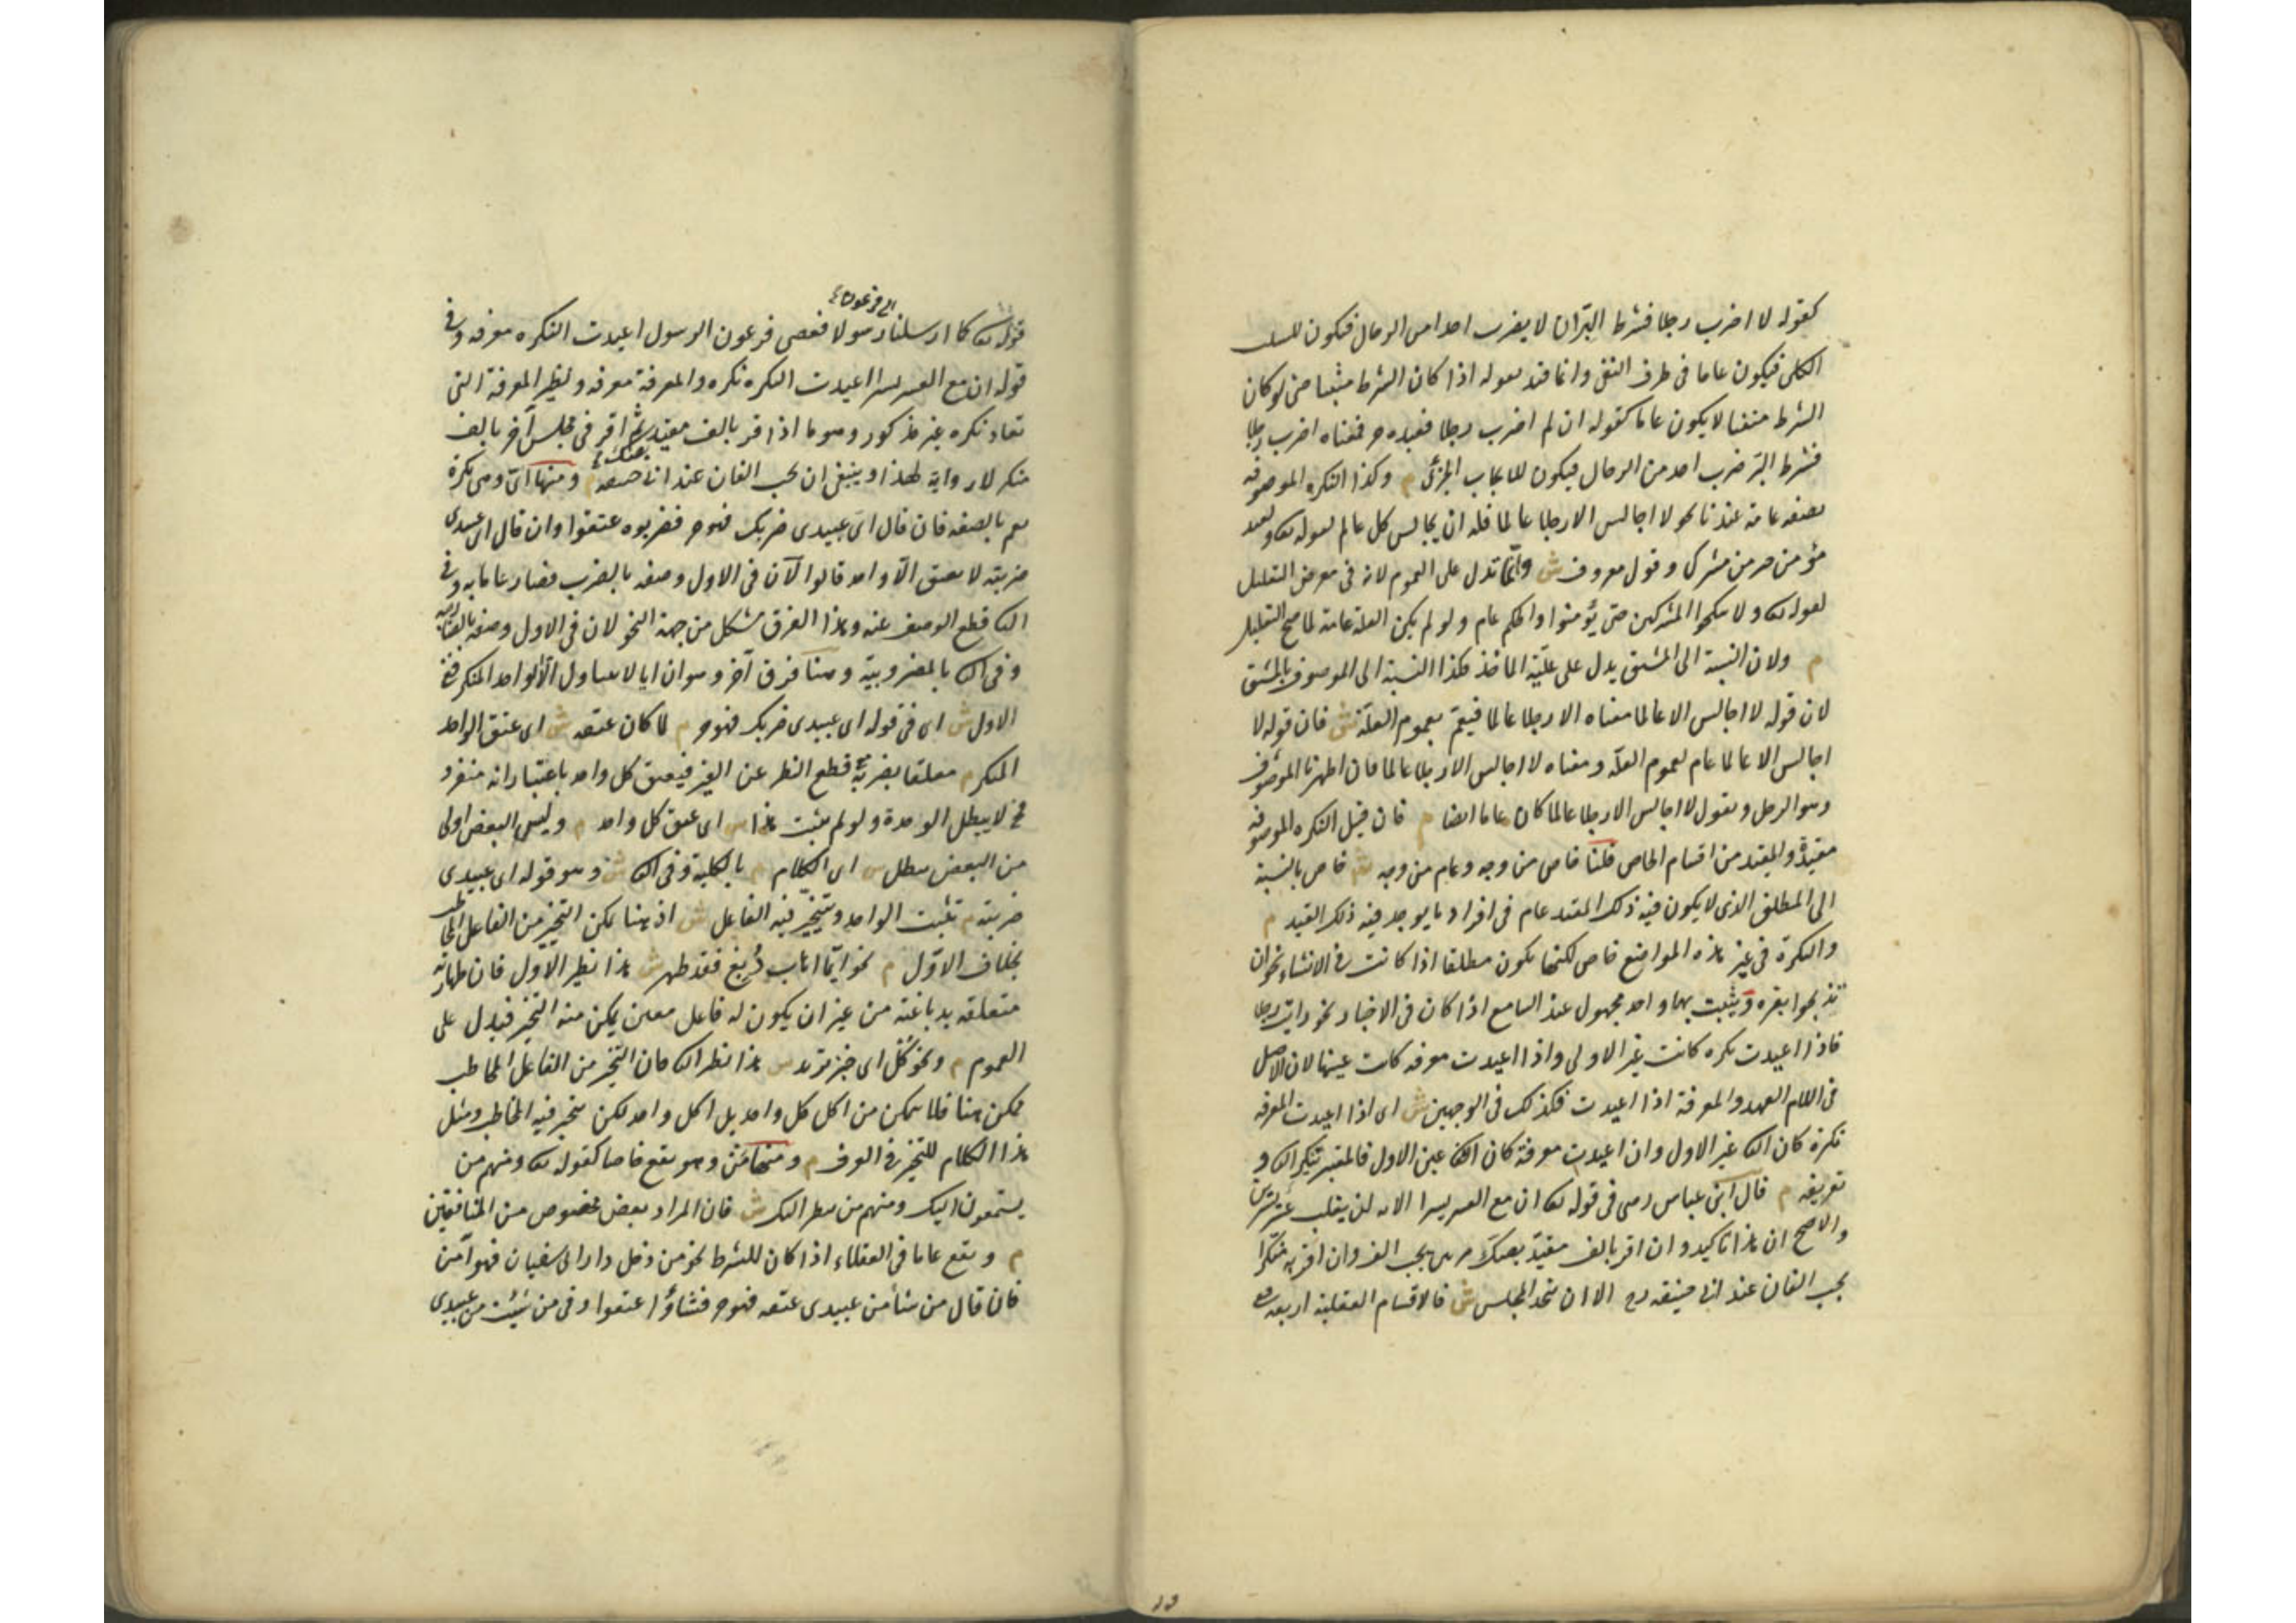 كقوله لا اضرب رجلا فشرط البر ان لا يضرب احدا من الرجال فيكون للسلب
الكلى فيكون عاما فى طرف النفى وانما قيد بقوله اذا كان الشرط مثبتا حتى لو كان
الشرط منفيا لا يكون عاما كقوله ان لم اضرب رجلا فعبده حر فمعناه اضرب رجلا
فشرط البر ضرب احد من الرجال فيكون للايجاب الجزئى م وكذا النكرة الموصوفة
بصفة عامة عندنا نحو لا اجالس الا رجلا عالما فله ان يجالس كل عالم لقوله تعالى ولعبد
مؤمن خير من مشرك وقول معروف ش وانما تدل على العموم لانه فى معرض التعليل
لقوله تعالى ولا تنكحوا المشركين حتى يؤمنوا والحكم عام ولو لم يكن العلة عامة لما صح التعليل
م ولان النسبة الى المشتق يدل على علية الماخذ فكذا النسبة الى الموصوف بالمشتق
لان قوله لا اجالس الا عالما معناه الا رجلا عالما فيعم بعموم العلة ش فان قوله لا
اجالس الا عالما عام لعموم العلة ومعناه لا اجالس الا رجلا عالما فان اظهرنا الموصوف
وهو الرجل ونقول لا اجالس الا رجلا عالما كان عاما ايضا م فان قيل النكرة الموصوفة
مقيدة والمقيد من اقسام الخاص قلنا خاص من وجه وعام من وجه ش خاص بالنسبة
الى المطلق الذى لا يكون فيه ذلك القيد عام فى افراد ما يوجد فيه ذلك القيد م
والنكرة فى غير هذه المواضع خاص لكنها تكون مطلقا اذا كانت فى الانشاء نحو ان
تذبحوا بقرة ويثبت بها واحد مجهول عند السامع اذا كان فى الاخبار نحو رايت رجلا
فاذا اعيدت نكرة كانت غير الاولى واذا اعيدت معرفة كانت عينها لان الاصل
فى اللام العهد والمعرفة اذا اعيدت فكذلك فى الوجهين ش اى اذا اعيدت المعرفة
نكرة كان الثانى غير الاول وان اعيدت معرفة كان الثانى عين الاول فالمعتبر تنكير الثانى و
تعريفه م قال ابن عباس رضى فى قوله تعالى ان مع العسر يسرا الاية لن يغلب عسر يسرين
والاصح ان هذا تاكيد وان اقر بالف مقيد بصك مرتين يجب الف وان اقر به منكرا
يجب الفان عند ابى حنيفة رح الا ان يتحد المجلس ش فالاقسام العقلية اربعة ففى
قوله تعالى كما ارسلنا الى فرعون رسولا فعصى فرعون الرسول اعيدت النكرة معرفة وفى
قوله ان مع العسر يسرا اعيدت النكرة نكرة والمعرفة معرفة ونظير المعرفة التى
تعاد نكرة غير مذكور وهو ما اذا اقر بالف مقيد بصك ثم اقر فى مجلس آخر بالف
منكر لا رواية لهذا وينبغى ان يجب الفان عند ابى حنيفة م ومنها اى وهى نكرة
تعم بالصفة فان قال اى عبيدى ضربك فهو حر فضربوه عتقوا وان قال اى عبيدى
ضربته لا يعتق الا واحد قالوا لان فى الاول وصفه بالضرب فصار عاما به وفى
الثانى قطع الوصف عنه وهذا الفرق مشكل من جهة النحو لان فى الاول وصفه بالضاربية
وفى الثانى بالمضروبية وهنا فرق آخر وهو ان ايا لا يتناول الا الواحد المنكر ففى
الاول ش اى فى قوله اى عبيدى ضربك فهو حر م لما كان عتقه ش اى عتق الواحد
المنكر م معلقا بضربه مع قطع النظر عن الغير فيعتق كل واحد باعتبار انه منفرد
فح لا يبطل الوحدة ولو لم يثبت هذا ش اى عتق كل واحد م وليس البعض اولى
من البعض يبطل ش اى الكلام م بالكلية وفى الثانى ش وهو قوله اى عبيدى
ضربته م يثبت الواحد ويتخير فيه الفاعل ش اذ هنا يمكن التخير من الفاعل المخاطب
بخلاف الاول م نحو ايما اهاب دبغ فقد طهر ش هذا نظير الاول فان طهارته
متعلقة بدباغته من غير ان يكون له فاعل معين يمكن منه التخير فيدل على
العموم م ونحو كل اى خبز تريد ش هذا نظير الثانى فان التخير من الفاعل المخاطب
ممكن هنا فلا يتمكن من اكل كل واحد بل اكل واحد لكن يتخير فيه المخاطب ومثل
هذا الكلام للتخير فى العرف م ومنها من وهو يقع خاصا كقوله تعالى ومنهم من
يستمعون اليك ومنهم من ينظر اليك ش فان المراد بعض مخصوص من المنافقين
م ويقع عاما فى العقلاء اذا كان للشرط نحو من دخل دار ابى سفيان فهو آمن
فان قال من شاء من عبيدى عتقه فهو حر فشاؤا عتقوا وفى من شئت من عبيدى